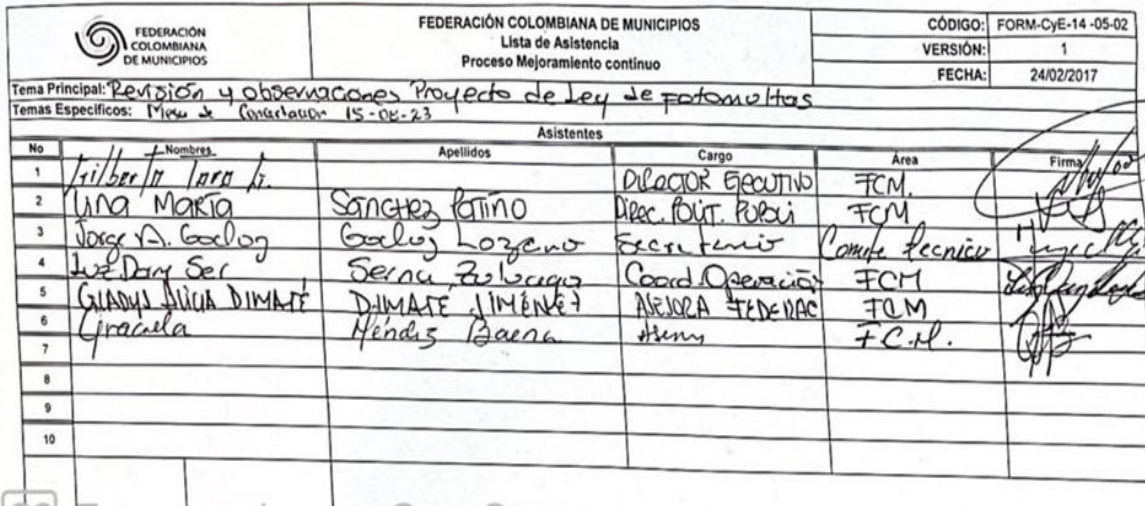 FEDERACIÓN
COLOMBIANA
DE MUNICIPIOS
FEDERACIÓN COLOMBIANA DE MUNICIPIOS
Lista de Asistencia
Proceso Mejoramiento continuo
CÓDIGO: FORM-CyE-14 -05-02
VERSIÓN: 1
FECHA: 24/02/2017
Tema Principal: Revisión y observaciones Proyecto de Ley de fotomultas
Temas Especificos: Mesa de 15-08-23
Asistentes
No Nombres Apellidos Cargo Área Firma
1 Gilberto Toro G. DIRECTOR EJECUTIVO FCM.
2 Lina María Sánchez Patiño Direc. POLIT. FCM
3 Jorge A. Godoy Godoy Lozano Secretario Comite tecnico
4 Luz Dary Ser Serna Zuluaga Coord. Operación FCM
5 GLADYS ALICIA DIMATÉ DIMATÉ JIMÉNEZ ASESORA FCM
6 Graciela Méndez Baena F.C.M.
7
8
9
10